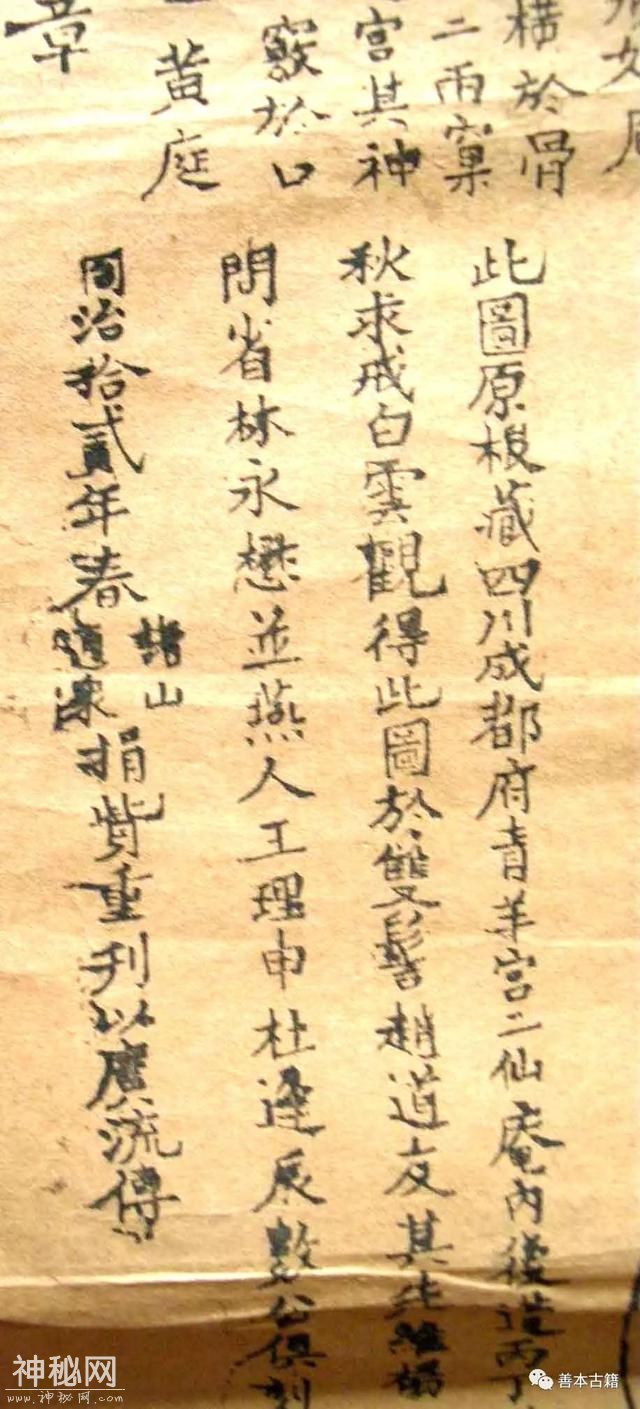 横於骨
二兩窠
宮其神
竅於口
黄庭
章
此圖原板藏四川成都府青羊宮二仙庵内後造丙丁
秋求戒白雲觀得此圖於雙髻趙道友其
閩省林永懋並燕人王理申杜逢辰數公俱刻
同治拾貳年春
山
捐貲重刊以廣流傳
神秘网
www.神秘网.com
善本古籍